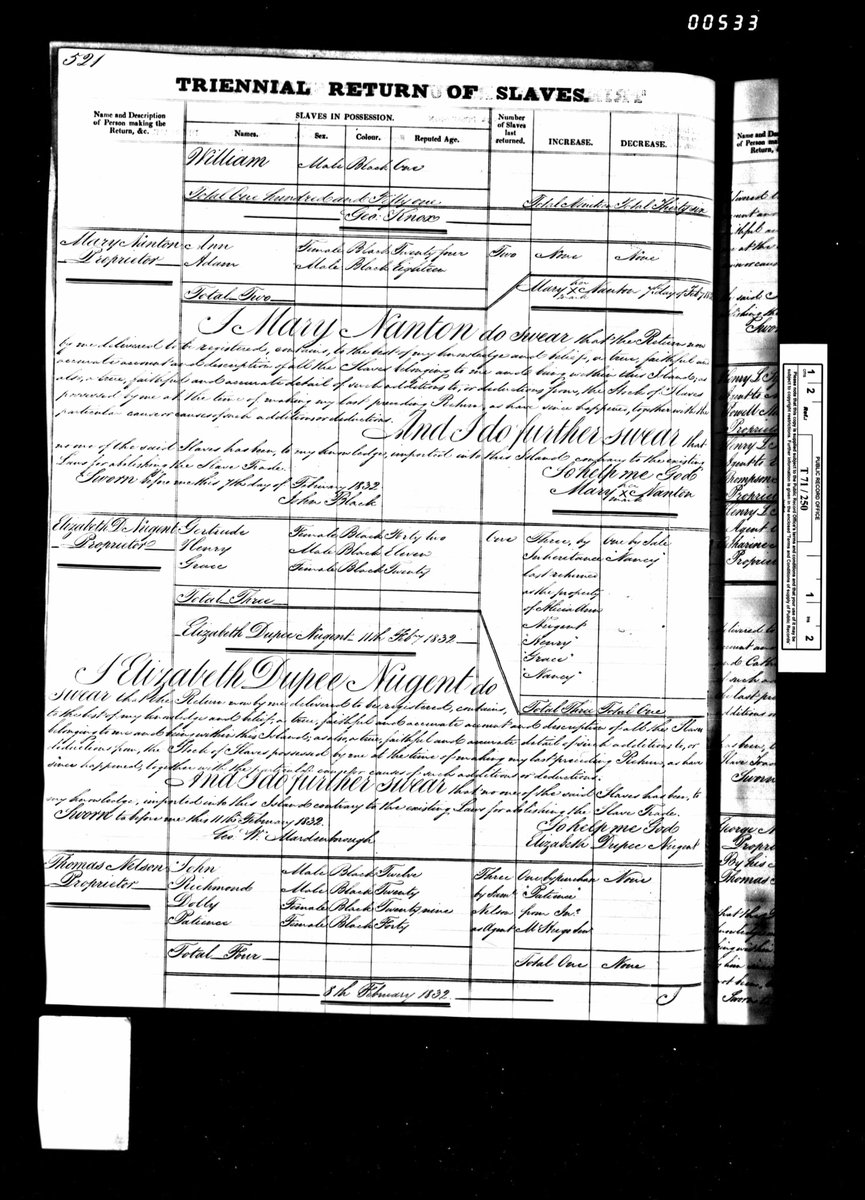 00533
521
TRIENNIAL RETURN OF SLAVES.
Name and Description of Person making the Return, &c.
SLAVES IN POSSESSION.
Names. Sex. Colour. Reputed Age.
Number of Slaves last returned.
INCREASE. DECREASE.
William Male Black One
Total One hundred and Fifty one Total Thirty six
Geo. Knox
Mary Nanton Ann Female Black Twenty four Two None None
Proprietor Adam Male Black Eighteen
Total Two
Mary her x mark Nanton 7th day of Feby
I Mary Nanton do swear that the Return now
by me delivered to be registered, contains, to the best of my knowledge and belief, a true, faithful and
accurate account and description of all the Slaves belonging to me and being within this Island; as
also, a true, faithful and accurate detail of such additions to, or deductions from, the Stock of Slaves
possessed by me at the time of making my last preceding Return, as have since happened, together with the
particular cause or causes of such additions or deductions.
And I do further swear that
no one of the said Slaves has been, to my knowledge, imported into this Island contrary to the existing
Laws for abolishing the Slave Trade. So help me God
Sworn before me this 7th day of February 1832 Mary her x mark Nanton
John Black
Elizabeth D. Nugent Gertrude Female Black Forty two One Three, by One by Sale
Proprietor Henry Male Black Eleven Inheritance "Nancy"
Grace Female Black Twenty last returned
as the property
Total Three of Alicia Ann
Nugent
Elizabeth Dupee Nugent 11th Feby 1832 "Henry"
"Grace"
"Nancy"
Total Three Total One
I Elizabeth Dupee Nugent do
swear that the Return now by me delivered to be registered, contains,
to the best of my knowledge and belief, a true, faithful and accurate account and description of all the Slaves
belonging to me and being within this Island; as also, a true, faithful and accurate detail of such additions to, or
deductions from, the Stock of Slaves possessed by me at the time of making my last preceding Return, as have
since happened, together with the particular cause or causes of such additions or deductions.
And I do further swear that no one of the said Slaves has been, to
my knowledge, imported into this Island contrary to the existing Laws for abolishing the Slave Trade.
Sworn to before me this 11th February 1832 So help me God
Geo. W. Mardenbrough Elizabeth Dupee Nugent
Thomas Nelson John Male Black Twelve Three One by purchase None
Proprietor Richmond Male Black Twenty by Saml "Patience"
Dolly Female Black Twenty nine Nelson from Jno
Patience Female Black Forty as Agent
Total Four Total One None
8th February 1832
PUBLIC RECORD OFFICE
Ref.: T 71/250
Please note that this copy is supplied subject to the Public Record Office's terms and conditions and that your use of it may be subject to copyright restrictions. Further information is given in the enclosed 'Terms and Conditions of supply of Public Records'